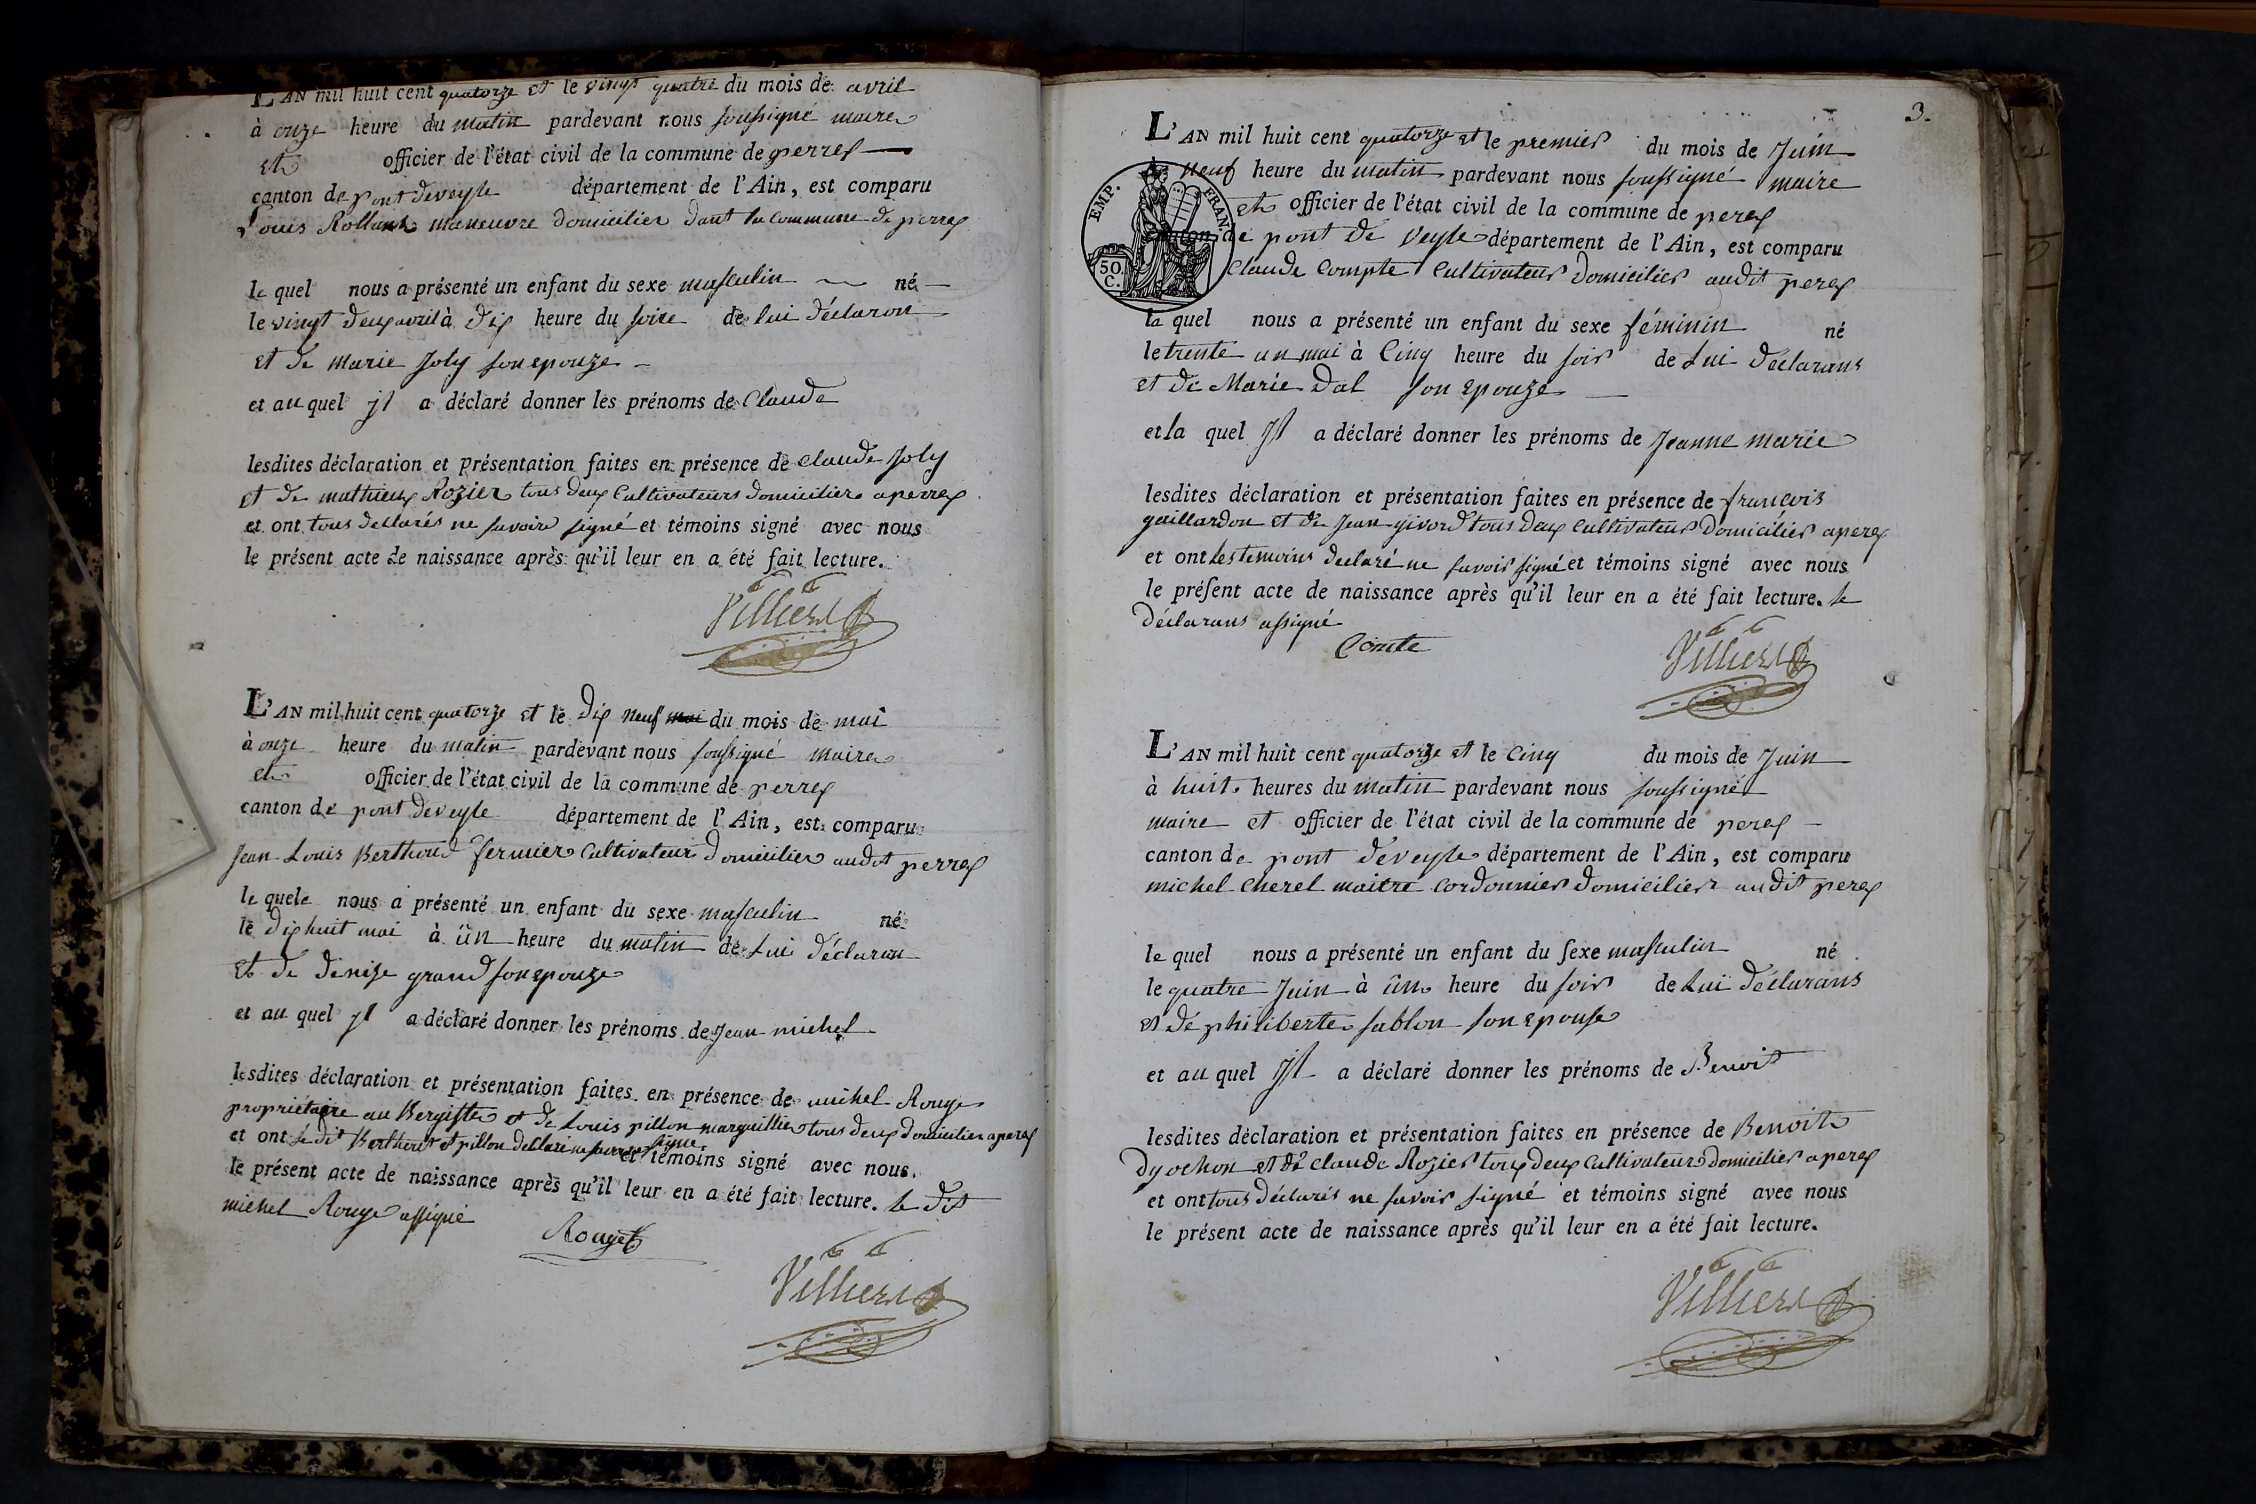 L'AN mil huit cent quatorze et le vingt quatre du mois de avril
à onze heure du matin pardevant nous soussigné maire
et officier de l'état civil de la commune de perrex
canton de pont deveyle département de l'Ain, est comparu
Louis Rolland maneuvre domicilier dant la commune de perrex
le quel nous a présenté un enfant du sexe masculin né
le vingt deux avril à dix heure du soire de lui déclaron
et de marie Joly son epouze
et au quel jl a déclaré donner les prénoms de Claude
lesdites déclaration et présentation faites en présence de claude Joly
et de mathieux Rozier tous deux Cultivateurs domicilier a perrex
et ont tous declarés ne savoir signé et témoins signé avec nous
le présent acte de naissance après qu'il leur en a été fait lecture.
Villierd
L'AN mil huit cent quatorze et le dix neuf mai du mois de mai
à onze heure du matin pardevant nous soussigné maire
et officier de l'état civil de la commune de perrex
canton de pont deveyle département de l'Ain, est comparu
Jean Louis Berthoud fermier Cultivateur domicilier audit perrex
le quele nous a présenté un enfant du sexe masculin né
le dix huit mai à ün heure du matin de Lui déclaron
et de denize grand son epouze
et au quel jl a déclaré donner les prénoms de Jean michel
lesdites déclaration et présentation faites en présence de michel Rouge
propriétaire au Bergiste et de Louis pillon marguillier tous deux domicilier a perex
et ont le dit Berthoud et pillon declaré ne savoir signé et témoins signé avec nous
le présent acte de naissance après qu'il leur en a été fait lecture. le dit
michel Rouge assigné
Rouget
Villierd
3.
L'AN mil huit cent quatorze et le premier du mois de Juin
à neuf heure du matin pardevant nous soussigné maire
et officier de l'état civil de la commune de perex
canton de pont de Veyle département de l'Ain, est comparu
Claude Compte Cultivateur domicilier audit perex
EMP. FRAN.
50. C.
la quel nous a présenté un enfant du sexe féminin né
le trente un mai à Cinq heure du soir de Lui déclarans
et de Marie Dal son epouze
et la quel Jl a déclaré donner les prénoms de Jeanne marie
lesdites déclaration et présentation faites en présence de françois
gaillardon et de Jean givord tous deux Cultivateur domicilier a perex
et ont les temoins declaré ne savoir signé et témoins signé avec nous
le présent acte de naissance après qu'il leur en a été fait lecture. le
déclarans assigné
Comte
Villierd
L'AN mil huit cent quatorze et le Cinq du mois de Juin
à huit heures du matin pardevant nous soussigné
maire et officier de l'état civil de la commune de perex
canton de pont deveyle département de l'Ain, est comparu
michel Cherel maitre Cordonnier domicilier audit perex
le quel nous a présenté un enfant du sexe masculin né
le quatre Juin à ûn heure du soir de Lui déclarans
et de philiberte sablon son epouse
et au quel Jl a déclaré donner les prénoms de Benoit
lesdites déclaration et présentation faites en présence de Benoit
dyochon et de Claude Rozier tous deux Cultivateur domicilier a perex
et ont tous déclarés ne savoir signé et témoins signé avec nous
le présent acte de naissance après qu'il leur en a été fait lecture.
Villierd